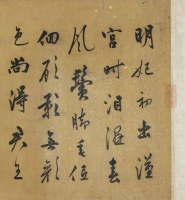 明妃初出漢
宮時淚濕春
風鬢腳垂低
佪顧影無顏
色尚得君王